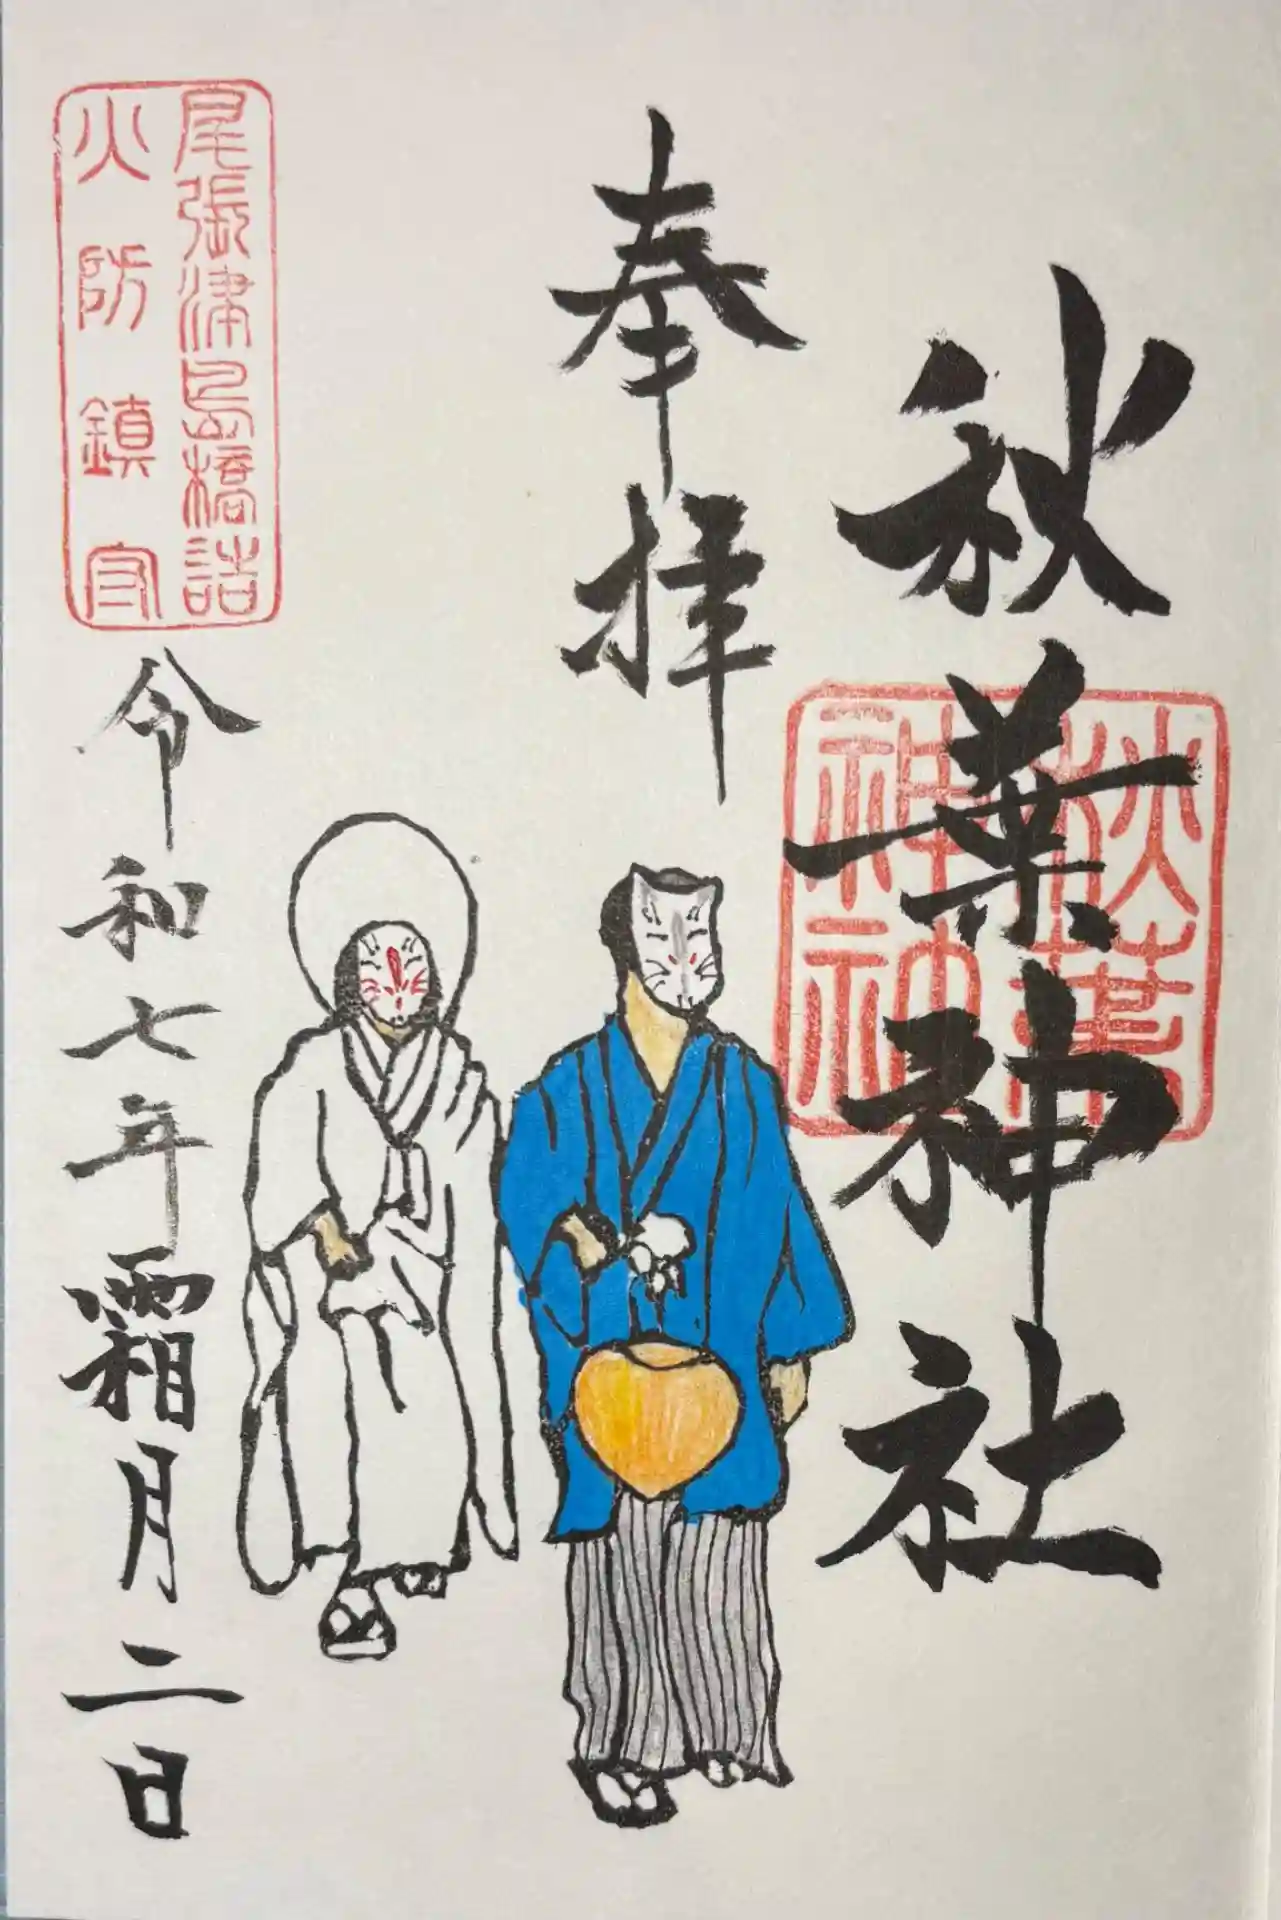 秋葉神社
秋葉
神社
奉拝
尾張津島橋詰
火防鎮守
令和七年霜月二日